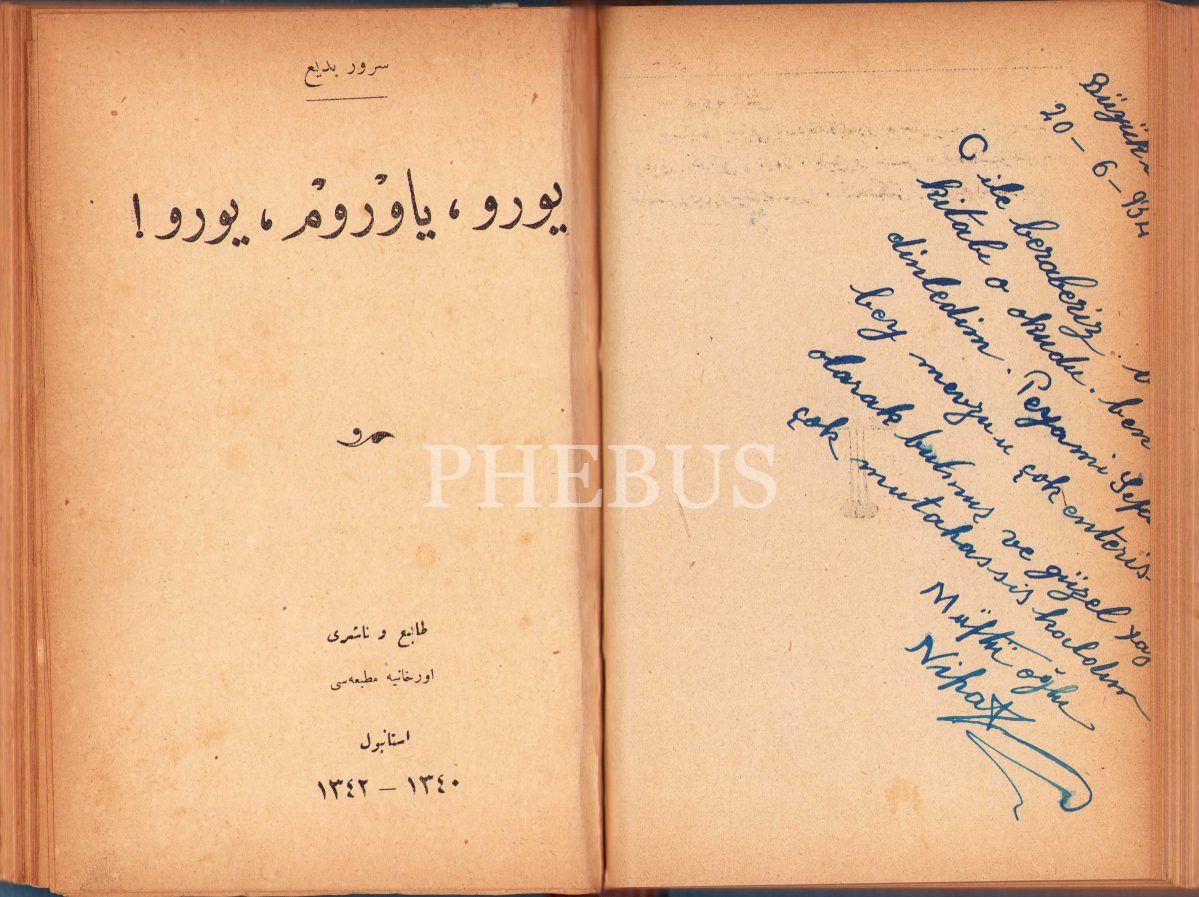 سرور بديع
يورو ، ياوْرومْ ، يورو !
طابع و ناشرى
اورخانيه مطبعه‌سى
استانبول
١٣٤٠ – ١٣٤٢
PHEBUS
20 – 6 – 934
ile beraberiz.
kitabı o okudu. ben
dinledim. Peyami Sefa
bey mevzuu çok enteris-
olarak bulmuş ve güzel
çok mutahassis kaldım
Müftü oğlu
Nihat